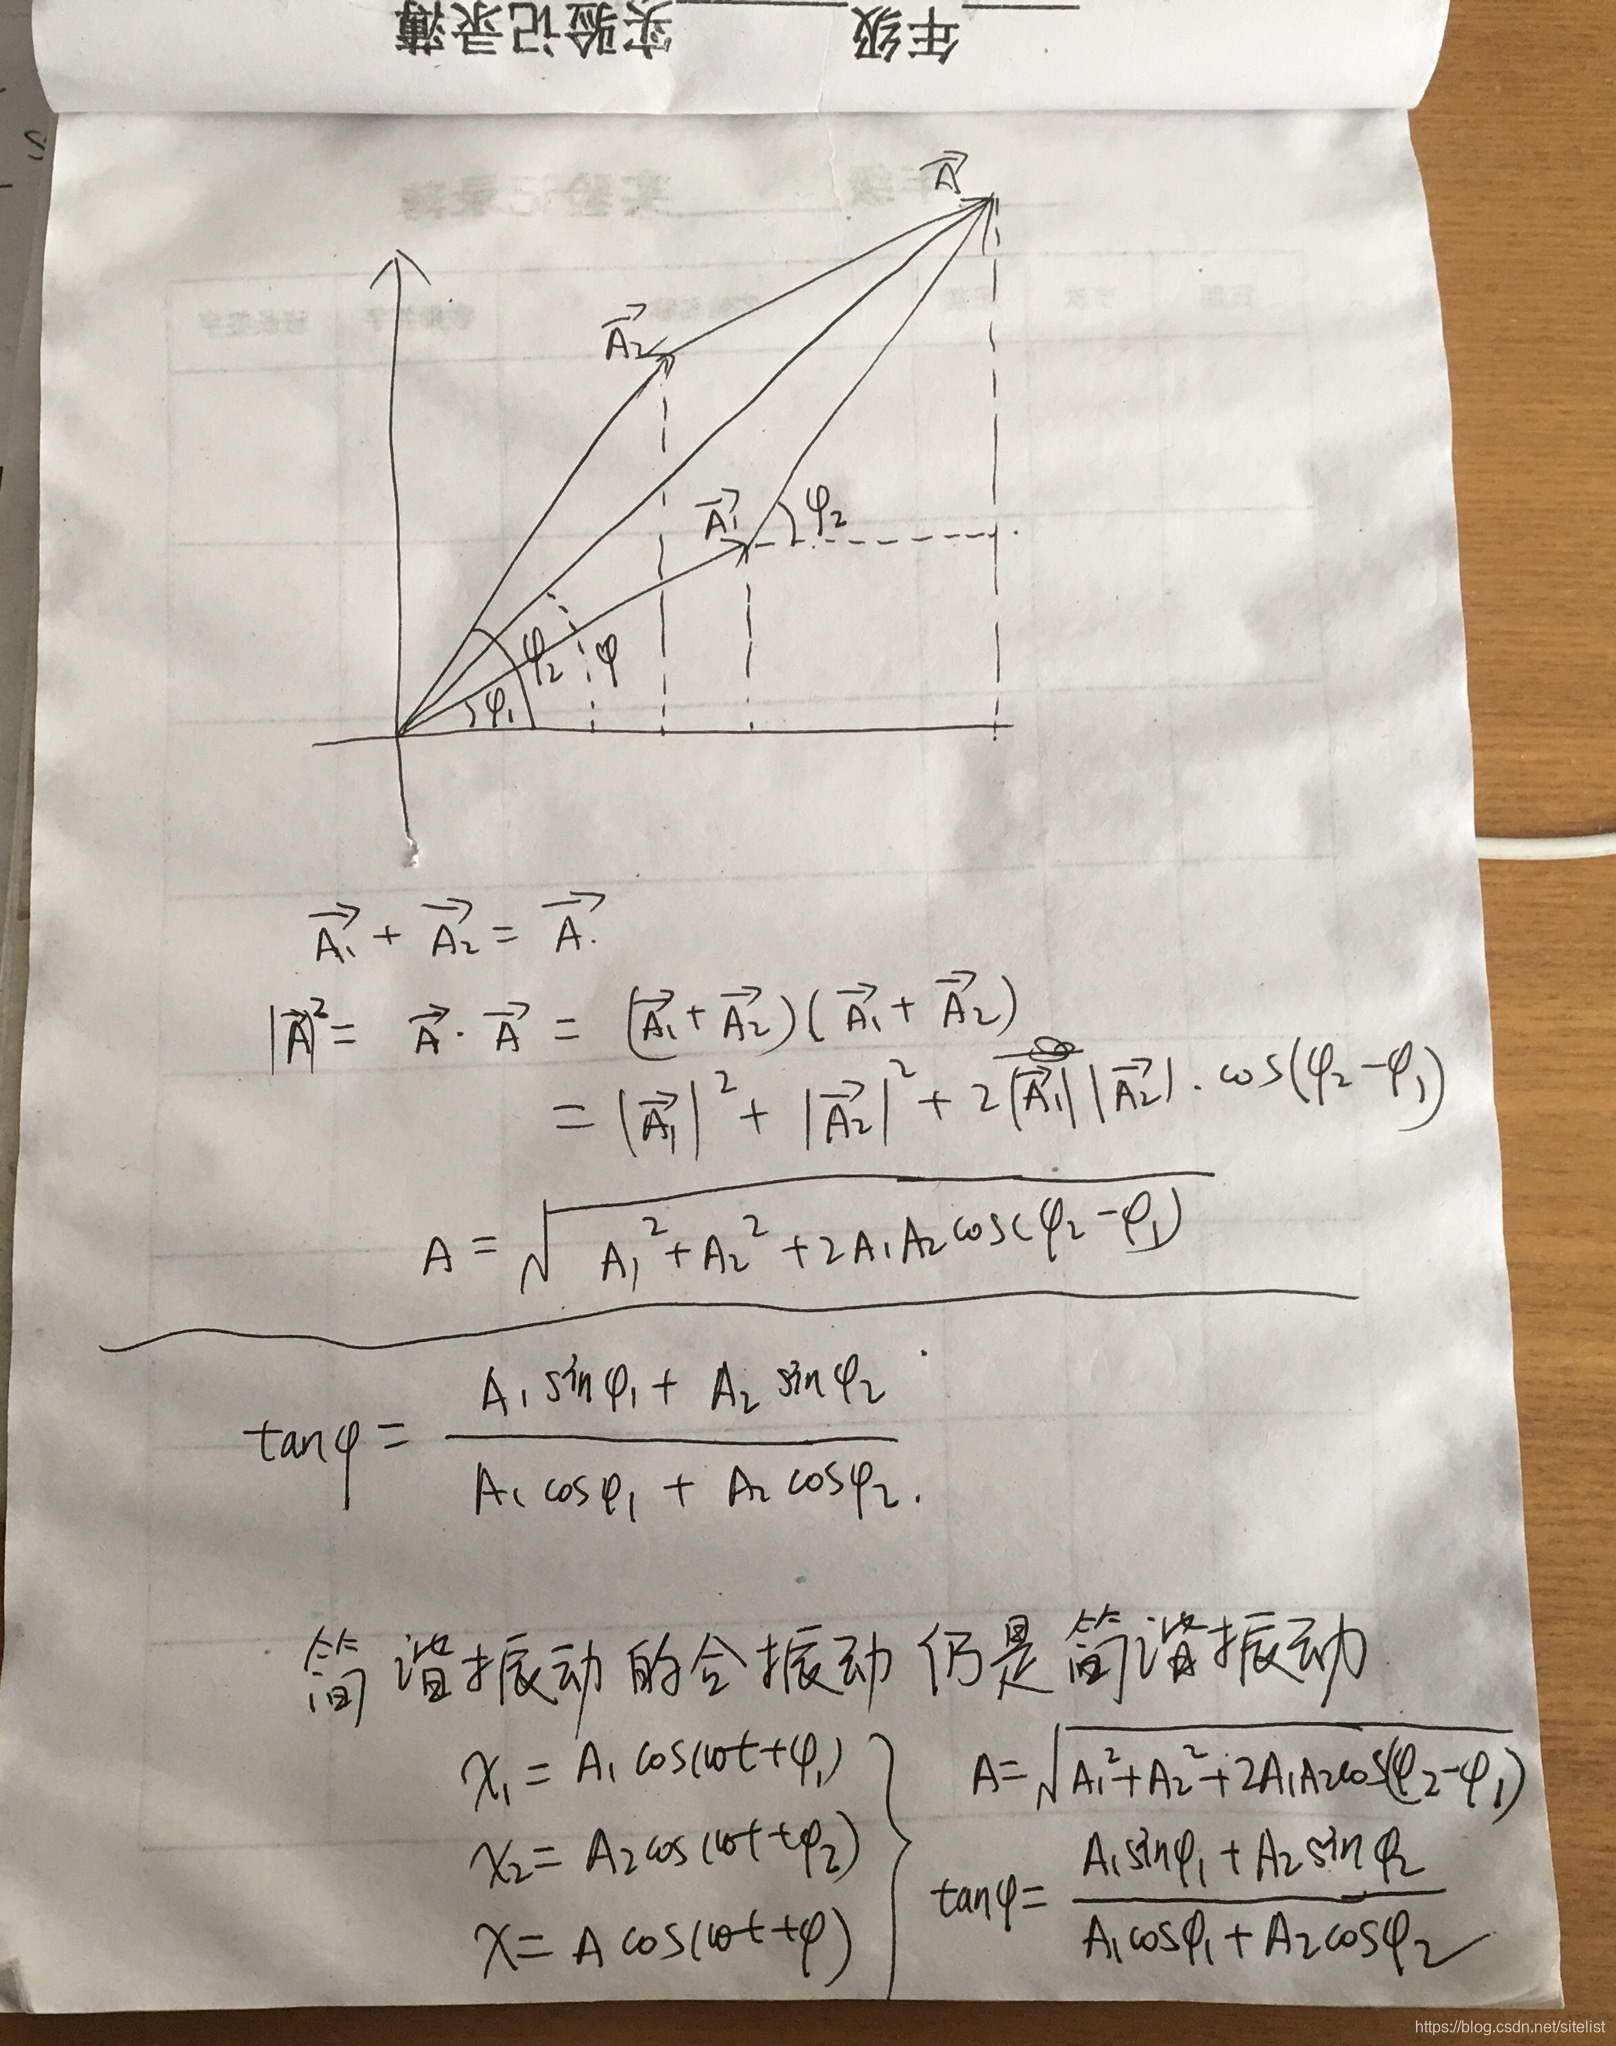 实验记录簿 年级
A⃗
A⃗₂
A⃗₁ φ₂
φ₂ φ
φ₁
A⃗₁ + A⃗₂ = A⃗.
|A⃗|² = A⃗ · A⃗ = (A⃗₁ + A⃗₂)(A⃗₁ + A⃗₂)
= |A⃗₁|² + |A⃗₂|² + 2|A⃗₁||A⃗₂| · cos(φ₂-φ₁)
A = √(A₁² + A₂² + 2A₁A₂cos(φ₂-φ₁))
tanφ = (A₁ sinφ₁ + A₂ sinφ₂) / (A₁ cosφ₁ + A₂ cosφ₂).
简谐振动的合振动仍是简谐振动
x₁ = A₁ cos(ωt+φ₁)
x₂ = A₂cos(ωt+φ₂)
x = A cos(ωt+φ)
A = √(A₁²+A₂²+2A₁A₂cos(φ₂-φ₁))
tanφ = (A₁sinφ₁ + A₂sinφ₂) / (A₁cosφ₁ + A₂cosφ₂)
https://blog.csdn.net/sitelist